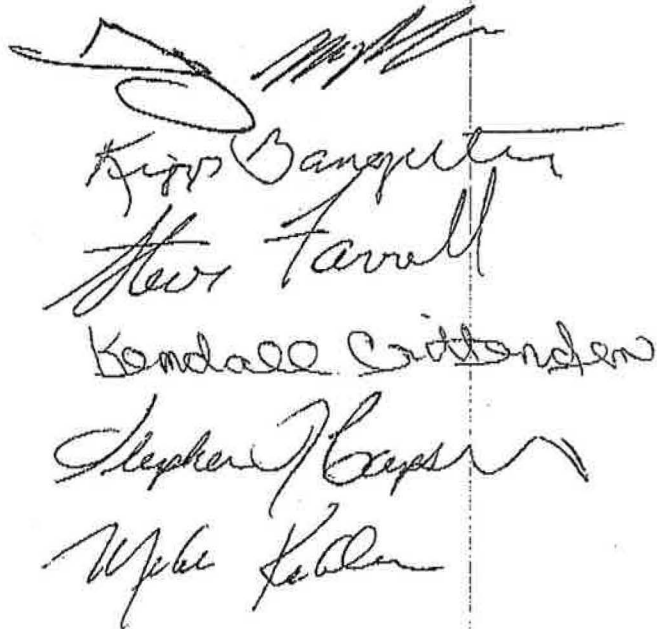 Kipp Bangerter
Steve Farrell
Kendall Crittenden
Stephen J Capson
Mike Kohler